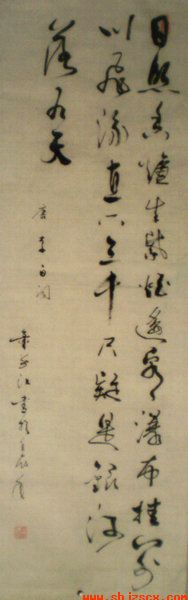 日照香爐生紫烟遥看瀑布挂前
川飛流直下三千尺疑是銀河
落九天
唐李白
江書於壬辰